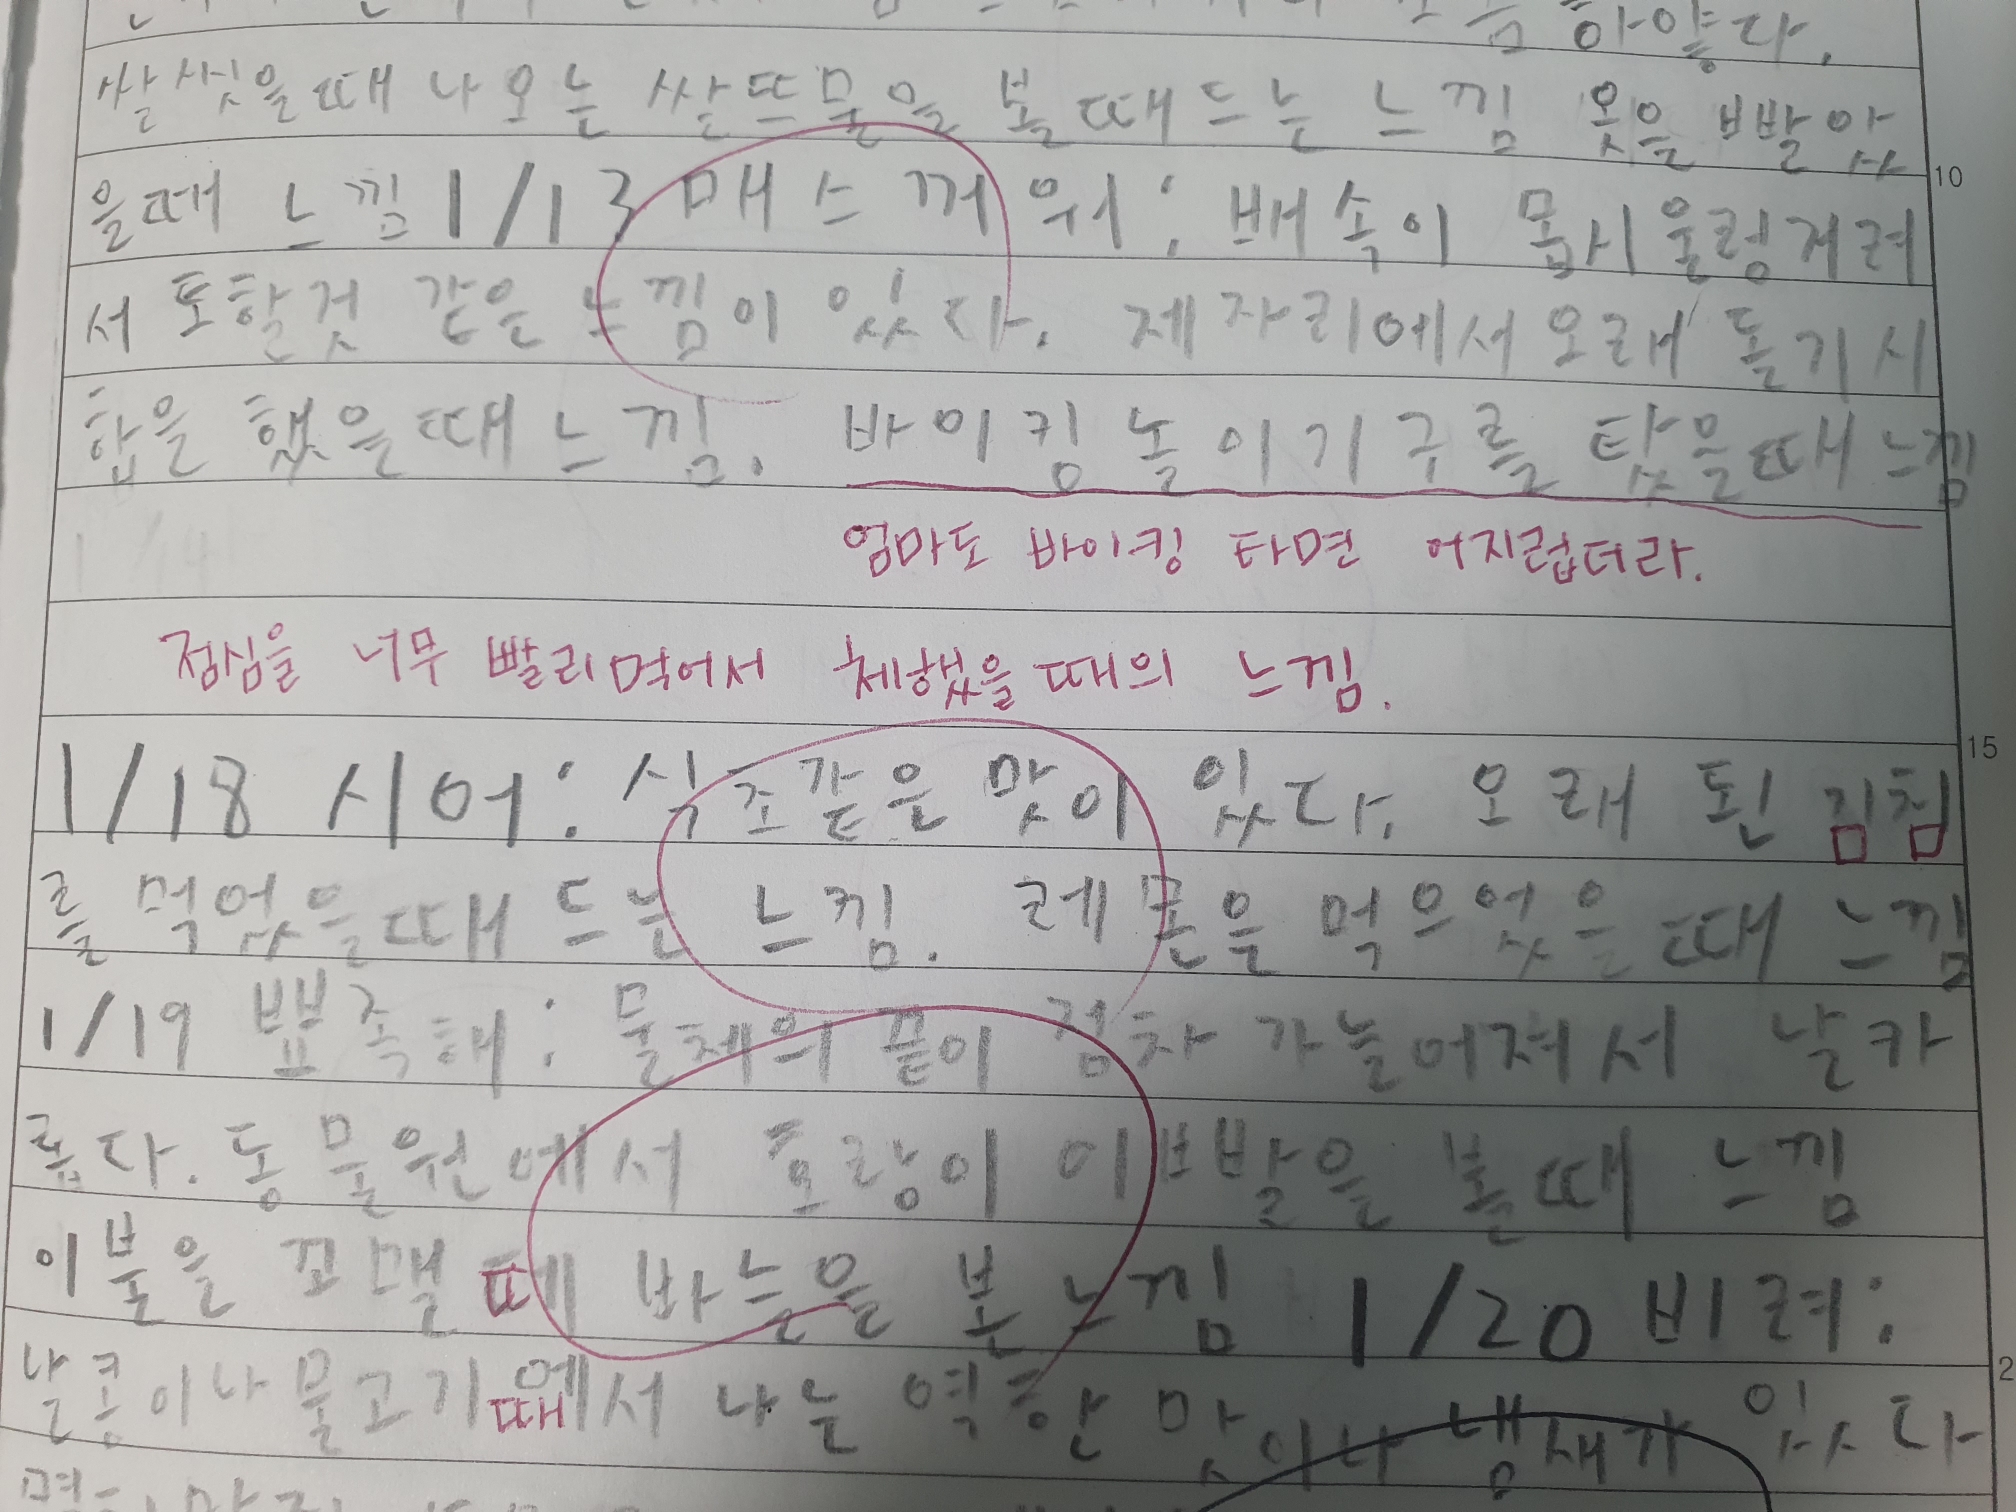 하얗다.
쌀 씻을때 나오는 쌀뜨물을 볼때드는 느낌 옷을 빨았
을때 느낌 1/13 매스꺼워: 배속이 몹시울렁거려
서 토할것 같은 느낌이 있다. 제자리에서오래 돌기시
합을 했을때 느낌. 바이킹놀이기구를 탔을때느낌
1/14
엄마도 바이킹 타면 어지럽더라.
점심을 너무 빨리먹어서 체했을때의 느낌.
1/18 시어: 식초같은 맛이 있다. 오래 된 김침
를 먹었을때 드는 느낌. 레몬을 먹으었을때 느낌
1/19 뾮족해: 물체의 끝이 점차 가늘어져서 날카
롭다. 동물원에서 호랑이 이빨을 볼때 느낌
이불을 꼬맬 떼 바늘을 본 느낌 1/20 비려:
때
날콩이나 물고기에서 나는 역한 맛이나 냄새가 있다